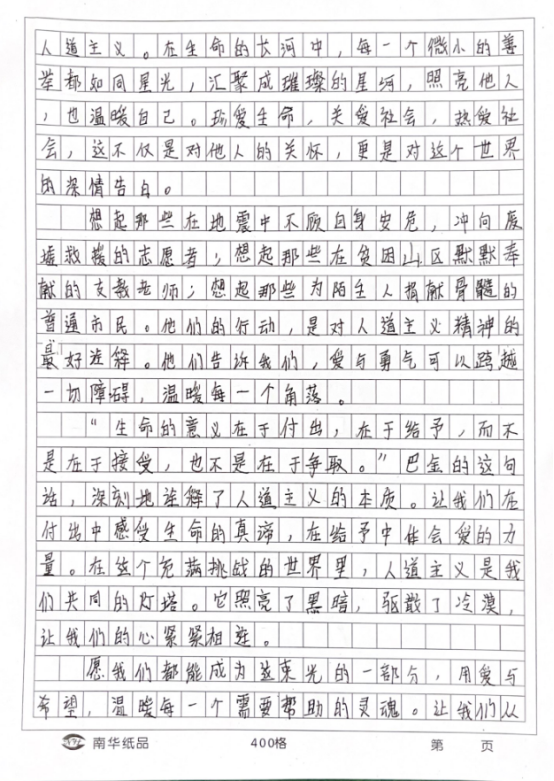 人道主义。在生命的长河中，每一个微小的善
举都如同星光，汇聚成璀璨的星河，照亮他人
，也温暖自己。珍爱生命，关爱社会，热爱社
会，这不仅是对他人的关怀，更是对这个世界
的深情告白。
想起那些在地震中不顾自身安危，冲向废
墟救援的志愿者；想起那些在贫困山区默默奉
献的支教老师；想起那些为陌生人捐献骨髓的
普通市民。他们的行动，是对人道主义精神的
最好诠释。他们告诉我们，爱与勇气可以跨越
一切障碍，温暖每一个角落。
“生命的意义在于付出，在于给予，而不
是在于接受，也不是在于争取。”巴金的这句
话，深刻地诠释了人道主义的本质。让我们在
付出中感受生命的真谛，在给予中体会爱的力
量。在这个充满挑战的世界里，人道主义是我
们共同的灯塔。它照亮了黑暗，驱散了冷漠，
让我们的心紧紧相连。
愿我们都能成为这束光的一部分，用爱与
希望，温暖每一个需要帮助的灵魂。让我们以
南华纸品 400格 第 页